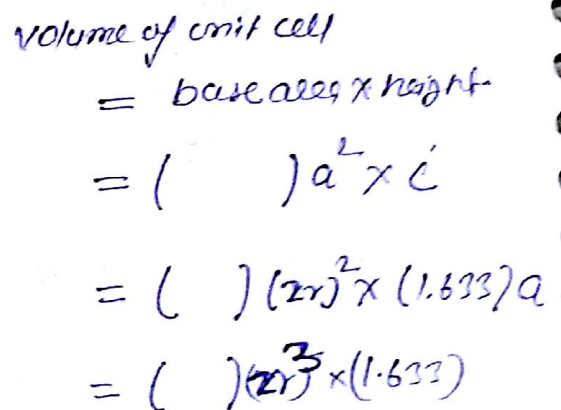 volume of unit cell
= base area x height
= ( ) a² x c
= ( ) (2r)² x (1.633) a
= ( ) (2r)³ x (1.633)